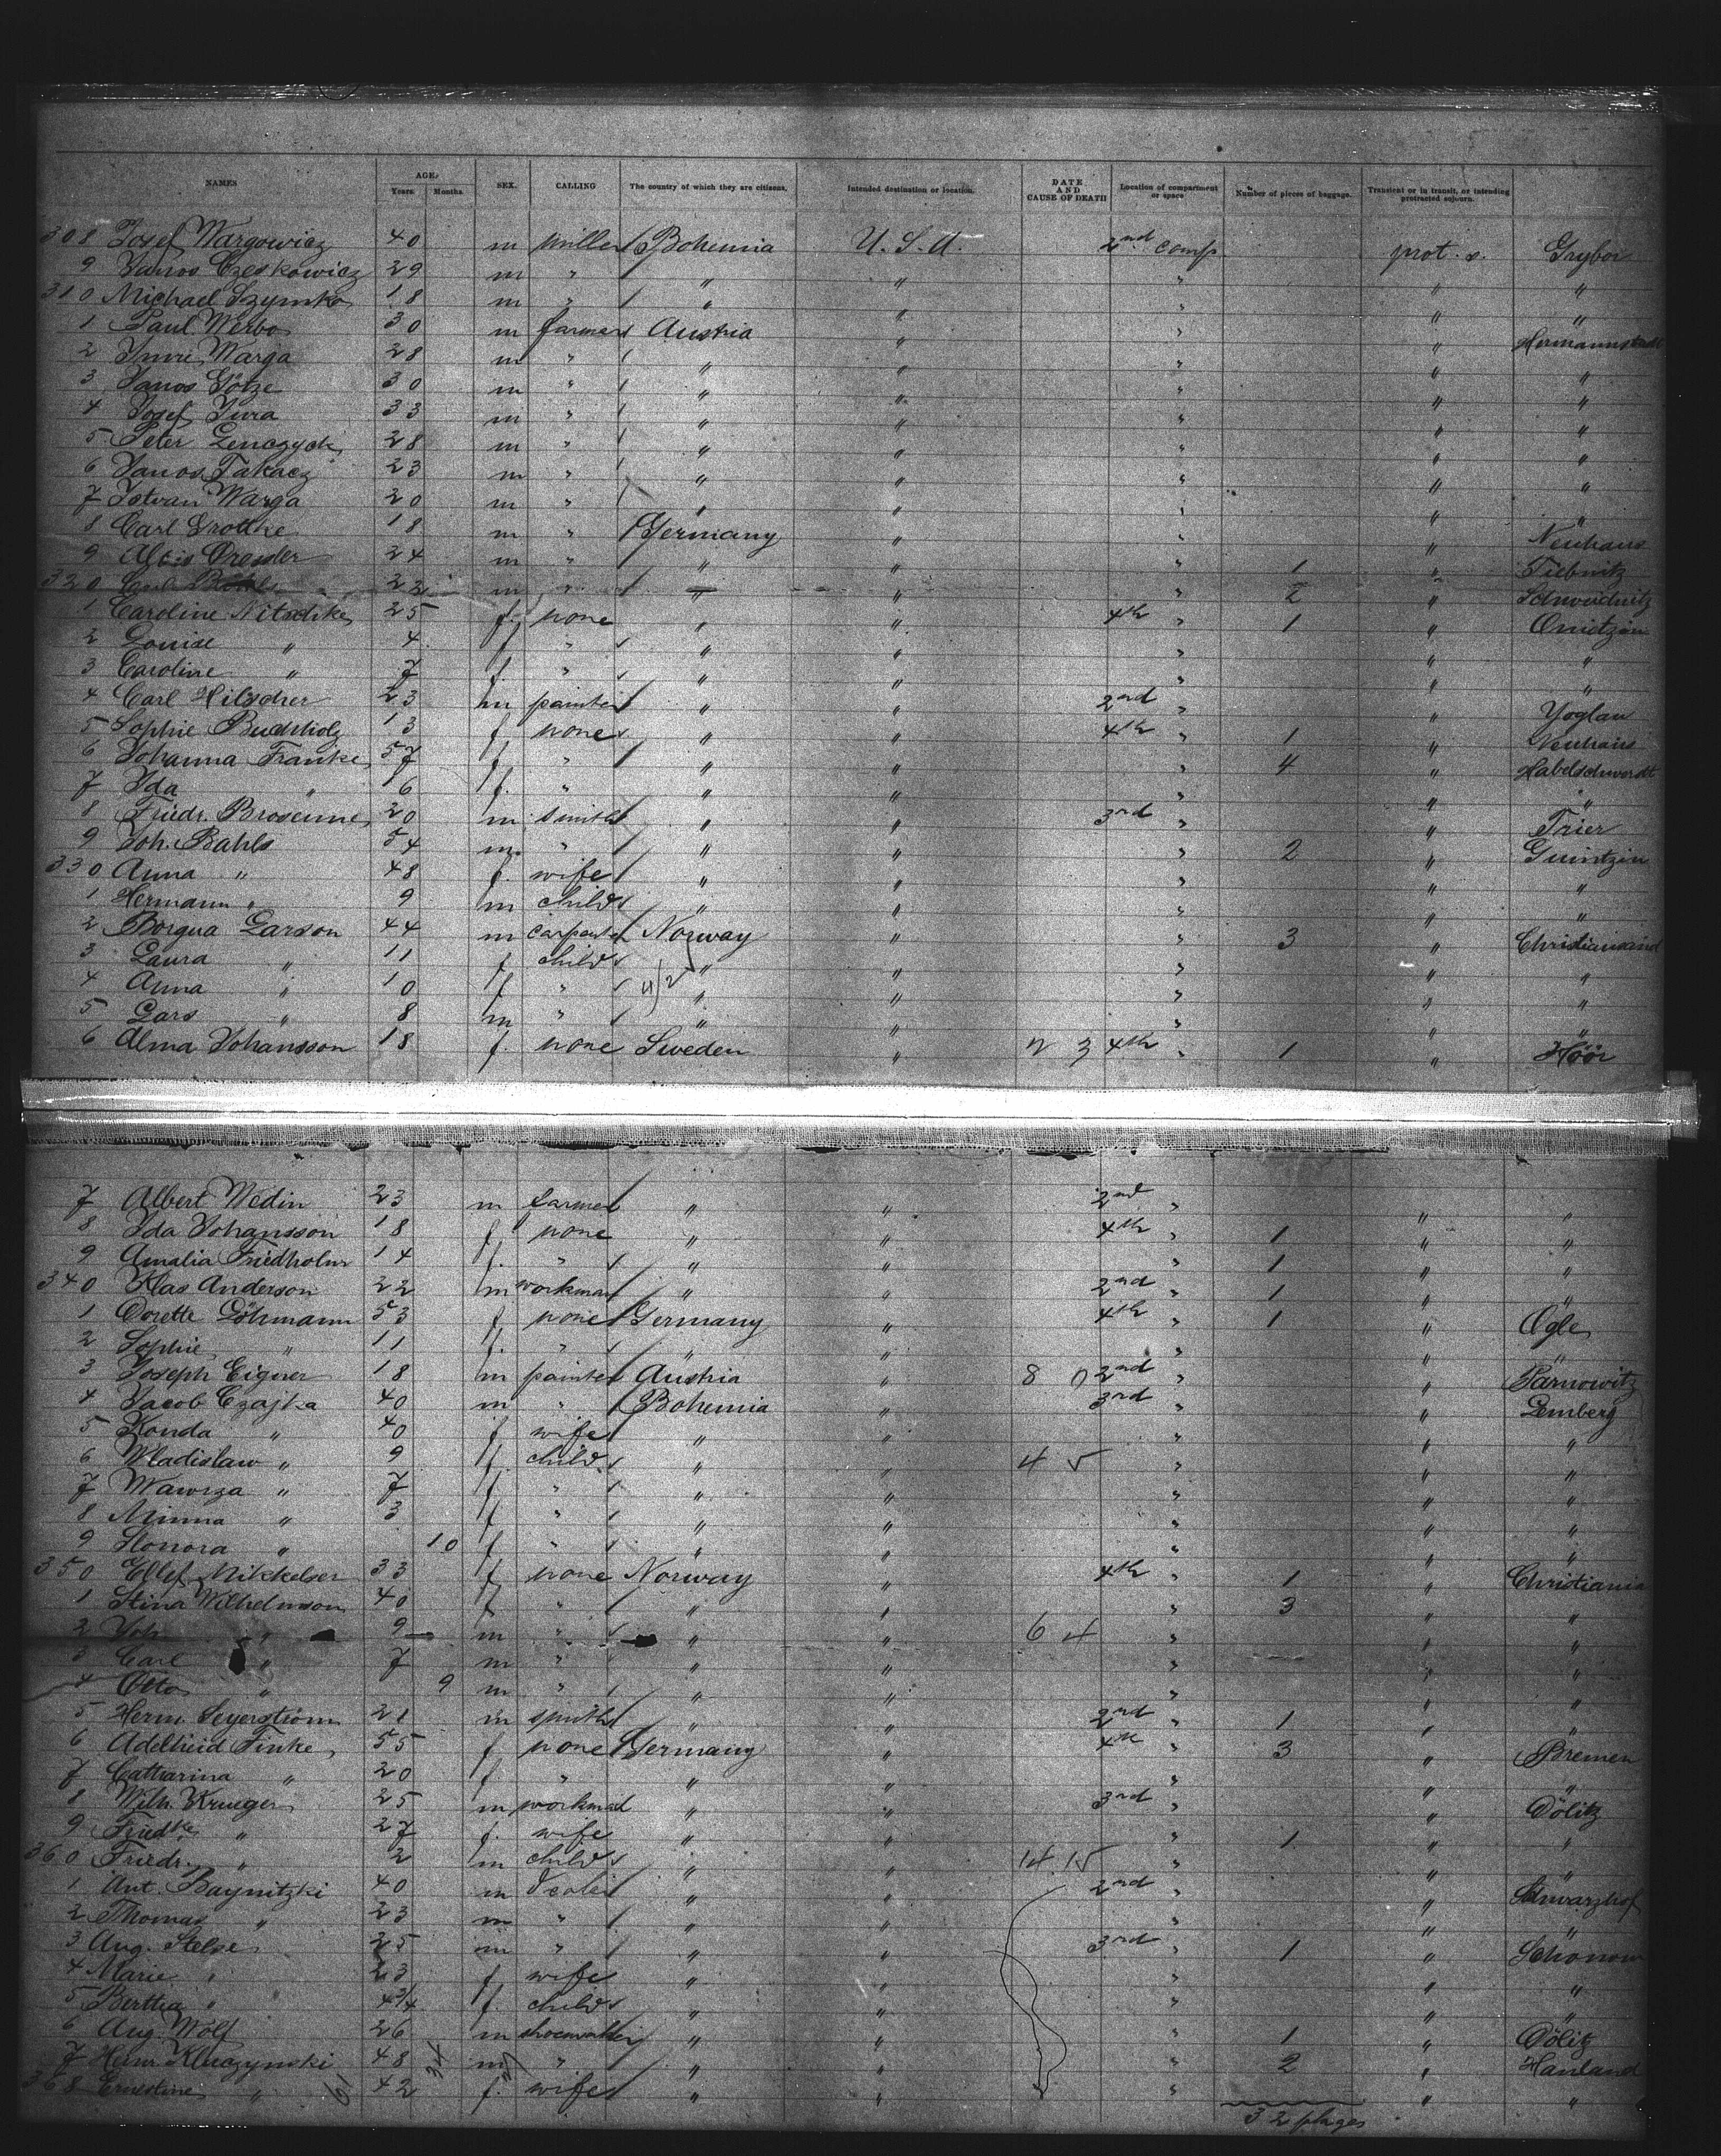 NAMES AGE, Years. Months. SEX. CALLING The country of which they are citizens. Intended destination or location. DATE AND CAUSE OF DEATH Location of compartment or space Number of pieces of baggage. Transient or in transit, or intending protracted sojourn.
308 Josef Wargowicz 40 m miller Bohemia U.S.A. 2nd comp prot. s. Grybor
9 Janos Czeskowicz 29 m " " " " " "
310 Michael Szymko 18 m " " " " " "
1 Paul Werbo 30 m farmer Austria " " " Hermannstadt
2 Imri Warga 28 m " " " " " "
3 Janos Götze 30 m " " " " " "
4 Josef Jura 33 m " " " " " "
5 Peter Lenczyck 28 m " " " " " "
6 Janos Takacz 23 m " " " " " "
7 Istvan Warga 20 m " " " " " "
8 Carl Grottke 18 m " Germany " " " Neuhaus
9 Alois Dressler 24 m " " " " 1 " Tiebnitz
320 22 m " " " " 2 " Schweidnitz
1 Caroline Nitschke 25 f. none " " 4th " 1 "
2 Louise " 4 f " " " " " "
3 Caroline " 7 f. " " " " " "
4 Carl Hilscher 23 m painter " " 2nd " " Yoglau
5 Sophie Buchholz 13 f none " " 4th " 1 " Neuhaus
6 Johanna Franke 57 f " " " " 4 " Habelschwerdt
7 Ida " 6 f. " " " " " "
8 Friedr. Brosenne 20 m smith " " 3rd " " Trier
9 Joh. Bahls 54 m. " " " " 2 " Guintzin
330 Anna " 48 f. wife " " " " "
1 Hermann " 9 m child " " " " "
2 Borgua Larson 44 m carpenter Norway " " 3 " Christiansand
3 Laura " 11 f child " " " " "
4 Anna " 10 f " 4/2 " " " " "
5 Lars " 8 m " " " " " "
6 Alma Johansson 18 f. none Sweden " 2 3 4th " 1 " Höör
7 Albert Wedin 23 m farmer " " 2nd " " "
8 Ida Johansson 18 f none " " 4th " 1 " "
9 Amalia Friedholm 14 f. " " " " 1 " "
340 Klas Anderson 22 m workman " " 2nd " 1 " "
1 Dorette Löhmann 53 f. none Germany " 4th " 1 " Ogle
2 Sophie " 11 f. " " " " " "
3 Joseph Eigner 18 m painter Austria " 8 0 2nd " " Tarnowitz
4 Jacob Czajka 40 m " Bohemia " 3rd " " Lemberg
5 Konda " 40 f wife " " " " "
6 Wladislaw " 9 f child " " 4 5 " " "
7 Wawrza " 7 f " " " " " "
8 Minna " 3 f " " " " " "
9 Honora " 10 f " " " " " "
350 Ellef Mikkelsen 33 f none Norway " 4th " 1 " Christiania
1 Stina Wilhelmson 40 f " " " " 3 " "
2 Joh " 9 m " " " 6 4 " " "
3 Carl " 7 m " " " " " "
4 Otto " 9 m " " " " " "
5 Herm. Seyerstrom 21 m smith " " 2nd " 1 " "
6 Adelheid Finke 55 f none Germany " 4th " 3 " Bremen
7 Catharina " 20 f " " " " " "
8 Wilh. Krueger 25 m workman " " 3rd " " Dölitz
9 Friedke " 27 f. wife " " " 1 " "
360 Friedr. " 2 m child " " 14 15 " " "
1 Ant. Baynitzki 40 m " " 2nd " " Schwarzhof
2 Thomas " 23 m " " " " " "
3 Aug. Stelse 25 m " " " 3rd " 1 " Schonow
4 Marie " 23 f wife " " " " "
5 Bertha " 4 3/4 f. child " " " " "
6 Aug. Wolf 26 m shoemaker " " " 1 " Dölitz
7 Heinr. Kluczynski 48 34 m " " " " 2 " Hanland
368 Ernestine " 61 42 f. wife " " " " "
32 plages